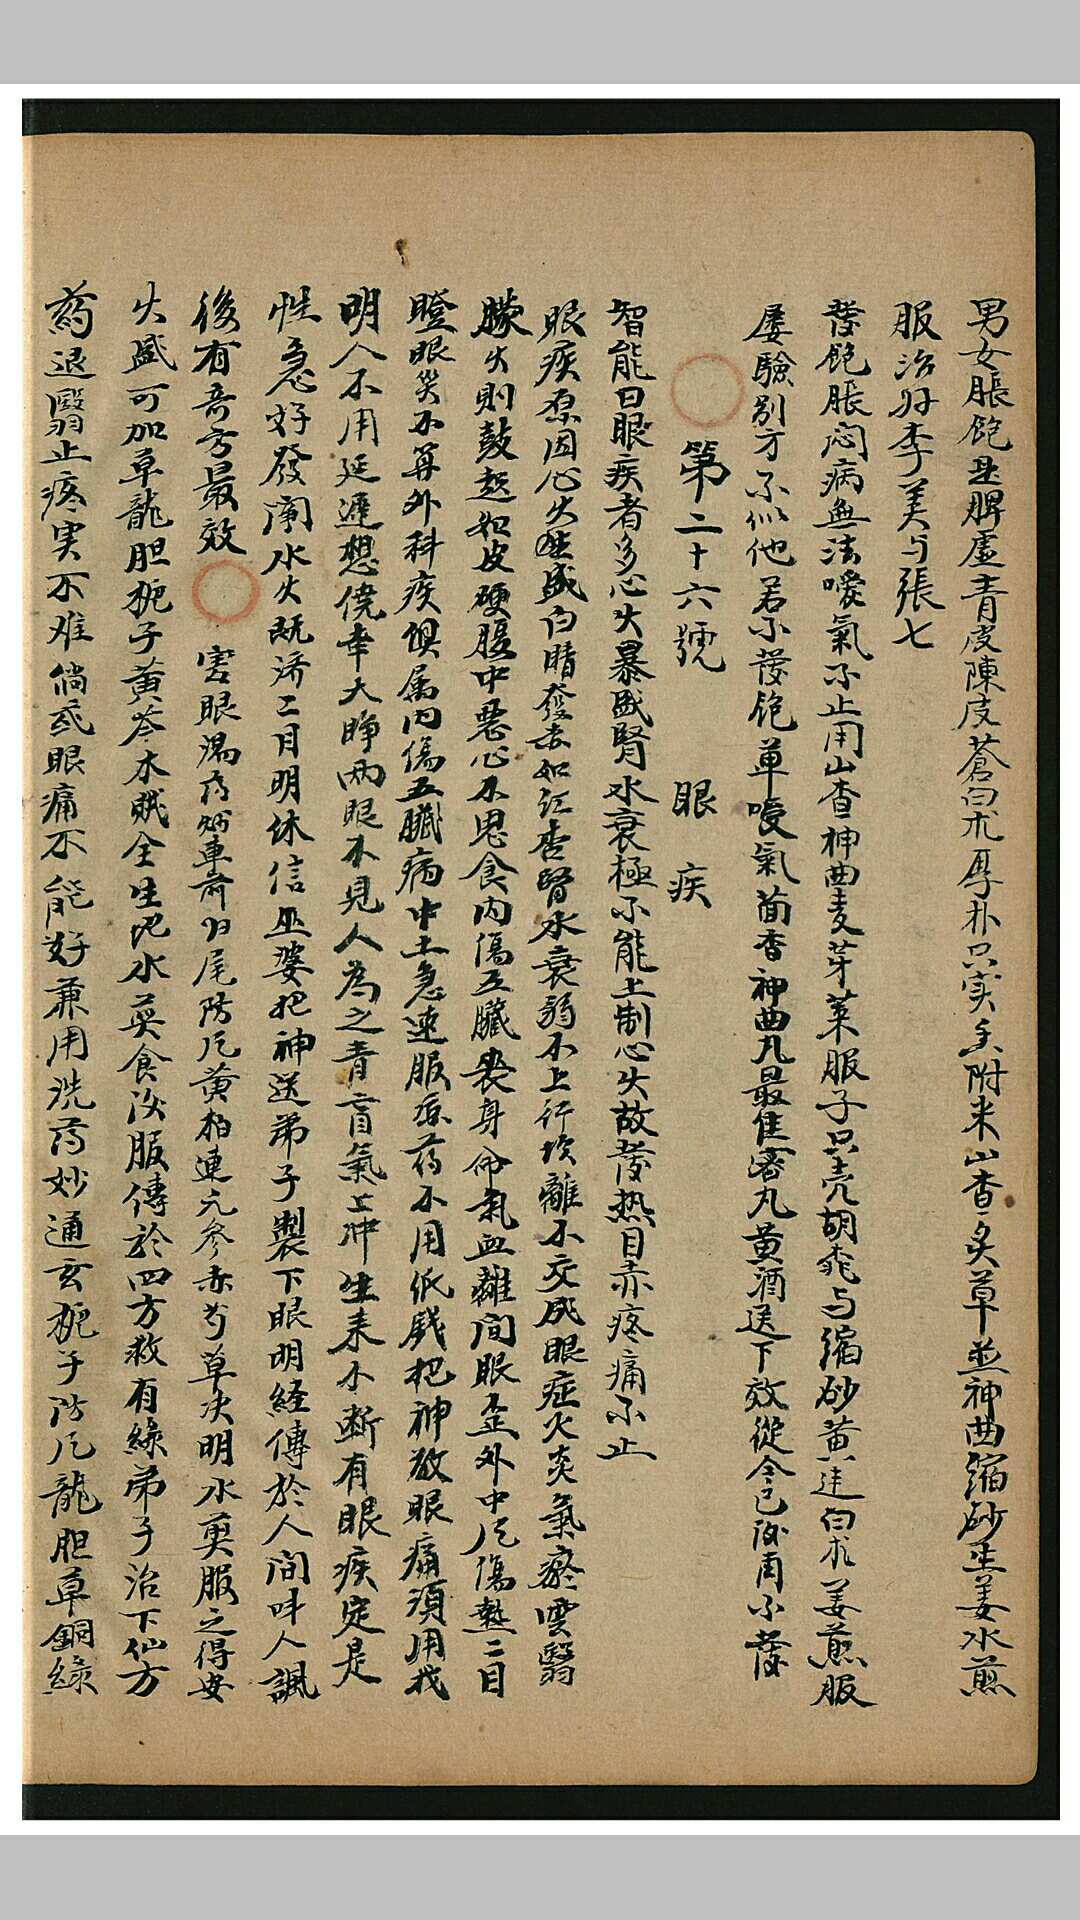 男女脹飽是脾虛青皮陳皮蒼白朮厚朴只实香附米山查炙草並神曲縮砂生姜水煎
服治好李美与張七
發飽脹悶病無法噯氣不止用山查神曲麦芽萊服子只壳胡桃与縮砂黃連白朮姜煎服
屡驗別方不似他若不發飽單噯氣茴香神曲丸最佳密丸黃酒送下效從今已後肉不發
第二十六號 眼疾
智能曰眼疾者多心火暴盛腎水衰極不能上制心火故發热目赤疼痛不止
眼疾原因心火盛白睛發赤如紅杏腎水衰弱不上行坎離不交成眼症火炎氣瘀雲翳
朦火則鼓起如皮硬腹中惡心不思食內傷五臟喪身命氣血離間眼歪外中風傷熱二目
瞪眼災不算外科疾俱属内傷五臟病中土急速服凉药不用低錢把神敬眼痛須用我
明人不用延遲想僥幸大睁两眼不見人為之青盲氣上冲生来不断有眼疾定是
性急好發闹水火既济二目明休信巫婆把神送弟子製下眼明経傳於人間呌人諷
後有竒方最效 害眼湯药妙車前归尾防風黃柏連元參赤芍草决明水煎服之得安
火盛可加草龍胆栀子黃芩木贼全生地水煎食後服傳於四方救有緣弟子治下仙方
药退翳止疼実不难倘或眼痛不能好兼用洗药妙通玄栀子防風龍胆草銅綠